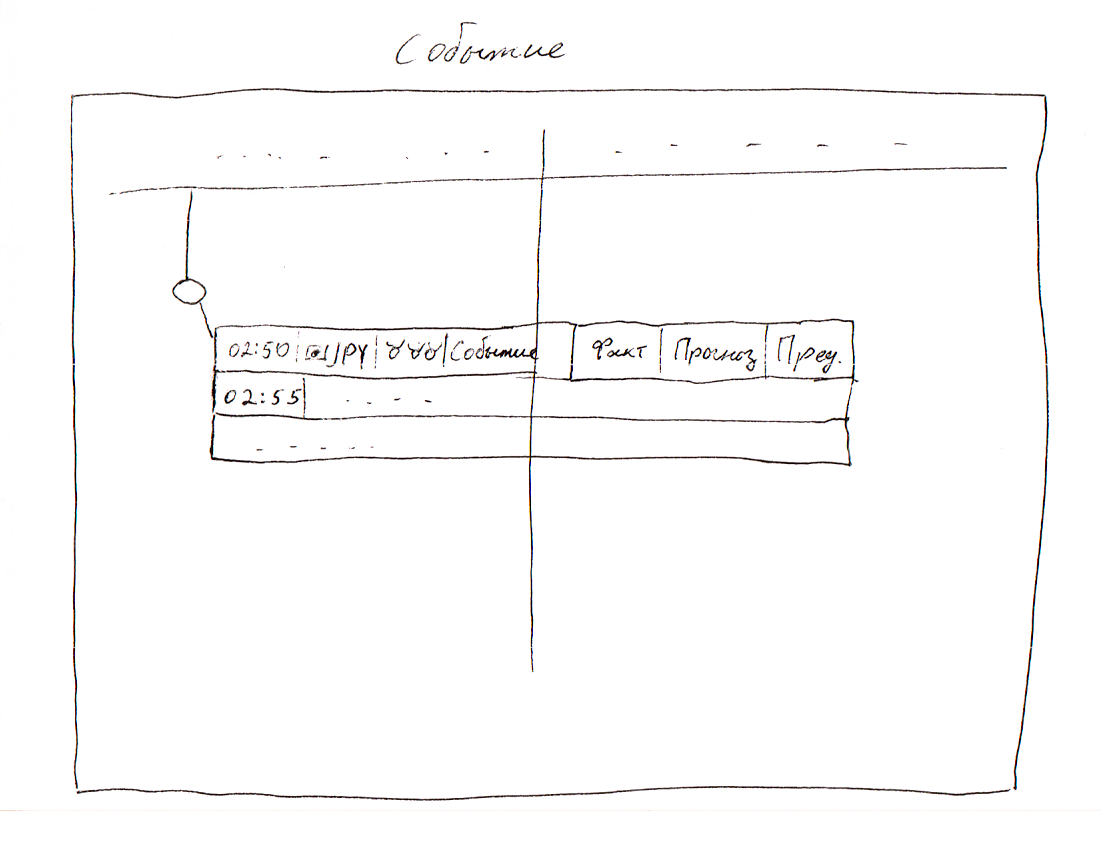 Событие
02:50 JPY Событие Факт Прогноз Пред.
02:55